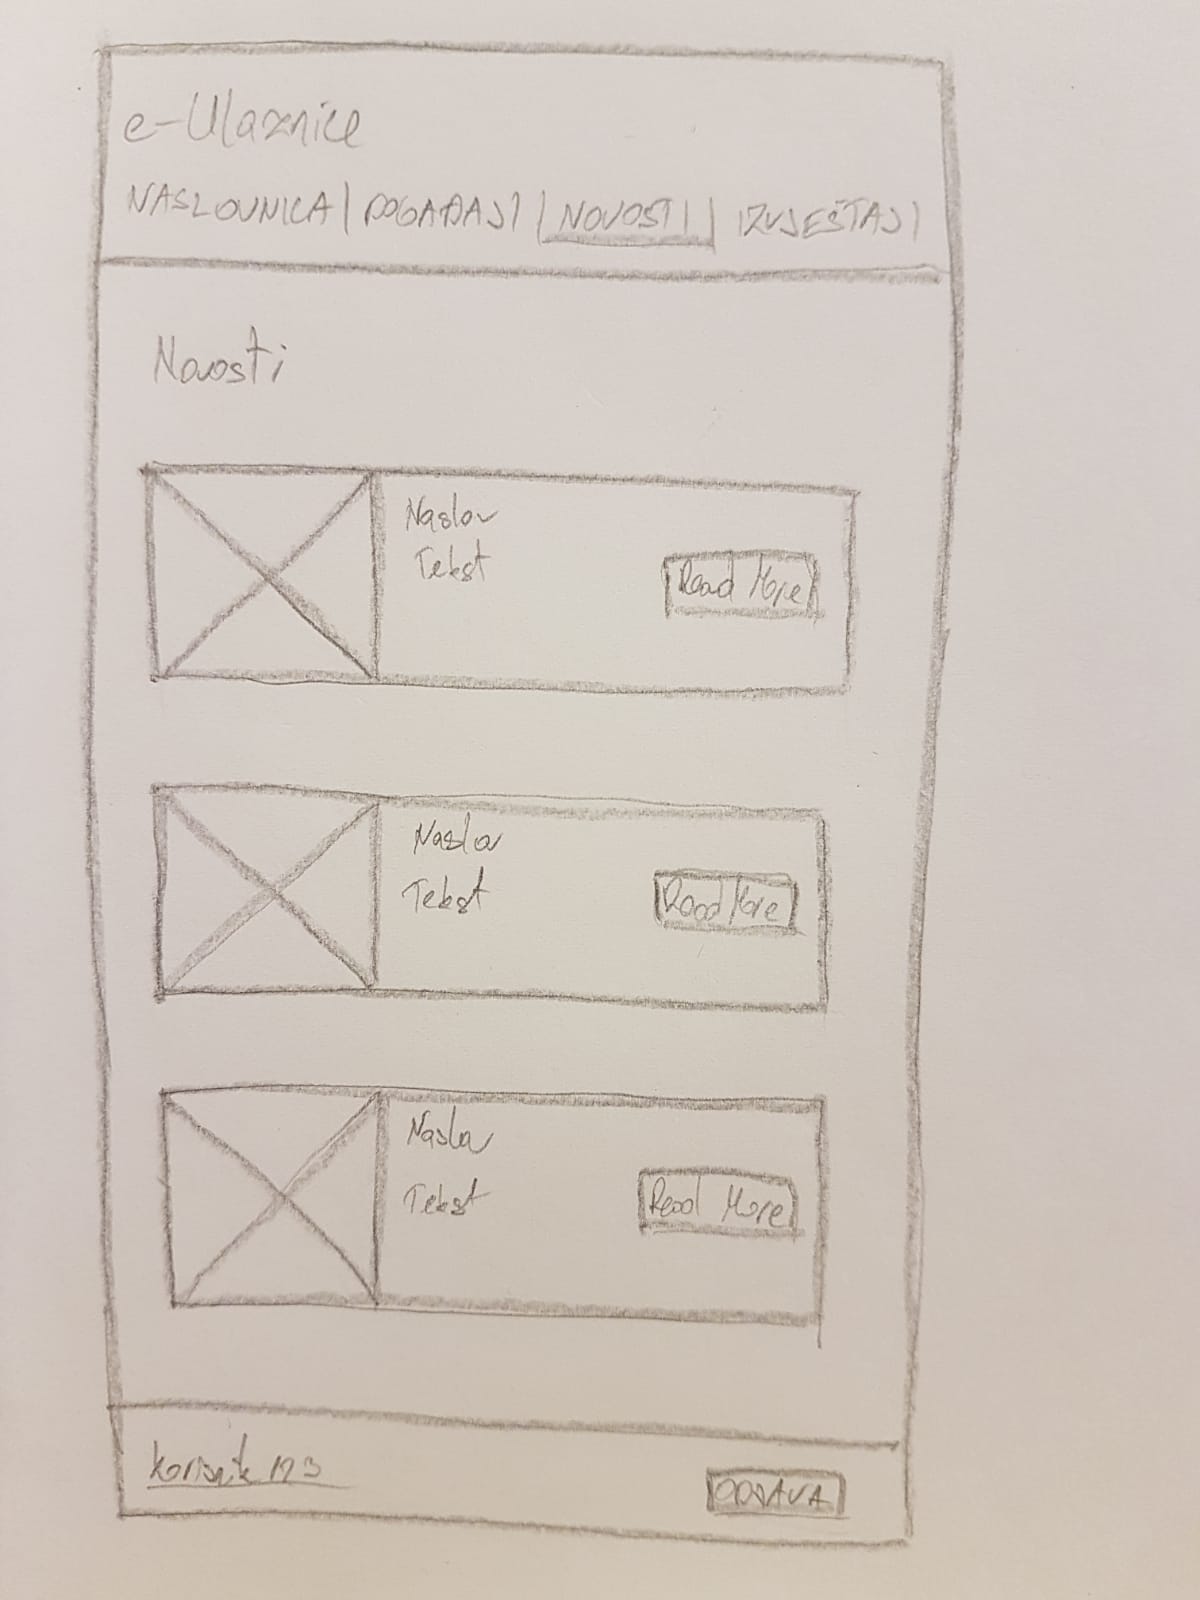 e-Ulaznice
NASLOVNICA | DOGAĐAJI | NOVOSTI | IZVJEŠTAJI
Novosti
Naslov
Tekst
Read More
Naslov
Tekst
Read More
Naslov
Tekst
Read More
Korisnik 123
ODJAVA